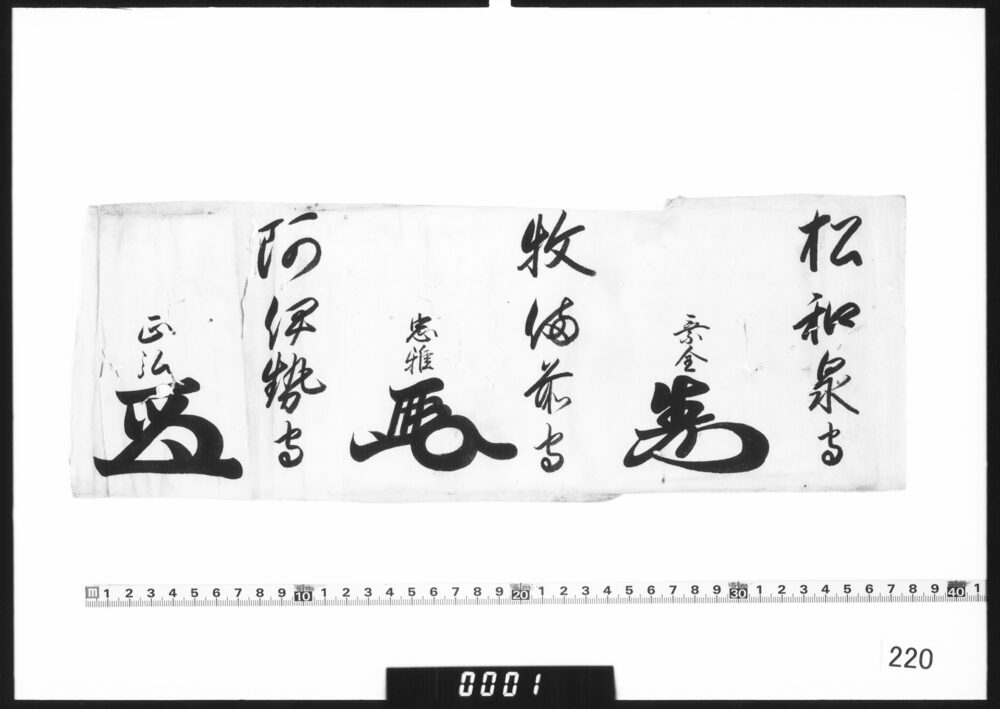 松和泉守
乗全
牧備前守
忠雅
阿伊勢守
正弘
m 1 2 3 4 5 6 7 8 9 10 1 2 3 4 5 6 7 8 9 20 1 2 3 4 5 6 7 8 9 30 1 2 3 4 5 6 7 8 9 40 1
220
0001